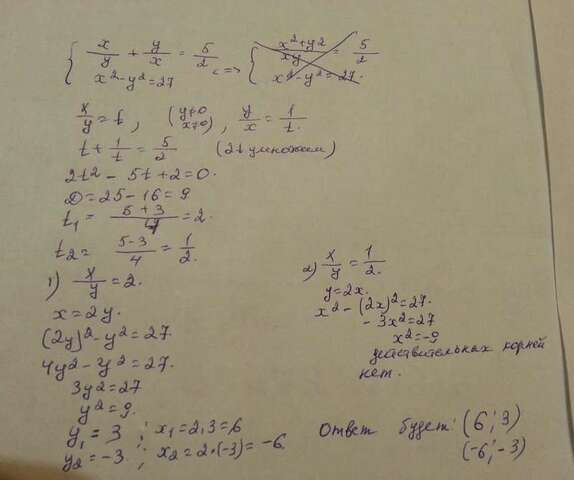 { x/y + y/x = 5/2 <=> { x²+y²/xy = 5/2
x²-y²=27 x²-y²=27.
x/y = t, (y≠0 x≠0), y/x = 1/t.
t + 1/t = 5/2 (2t умножим)
2t² - 5t + 2 = 0.
D = 25 - 16 = 9
t₁ = 5+3/4 = 2.
t₂ = 5-3/4 = 1/2.
1) x/y = 2.
x = 2y.
(2y)² - y² = 27
4y² - y² = 27.
3y² = 27
y² = 9.
y₁ = 3 ; x₁ = 2·3 = 6
y₂ = -3 ; x₂ = 2·(-3) = -6.
2) x/y = 1/2.
y = 2x.
x² - (2x)² = 27.
- 3x² = 27
x² = -9
действительных корней
нет.
Ответ будет: (6; 3)
(-6; -3)